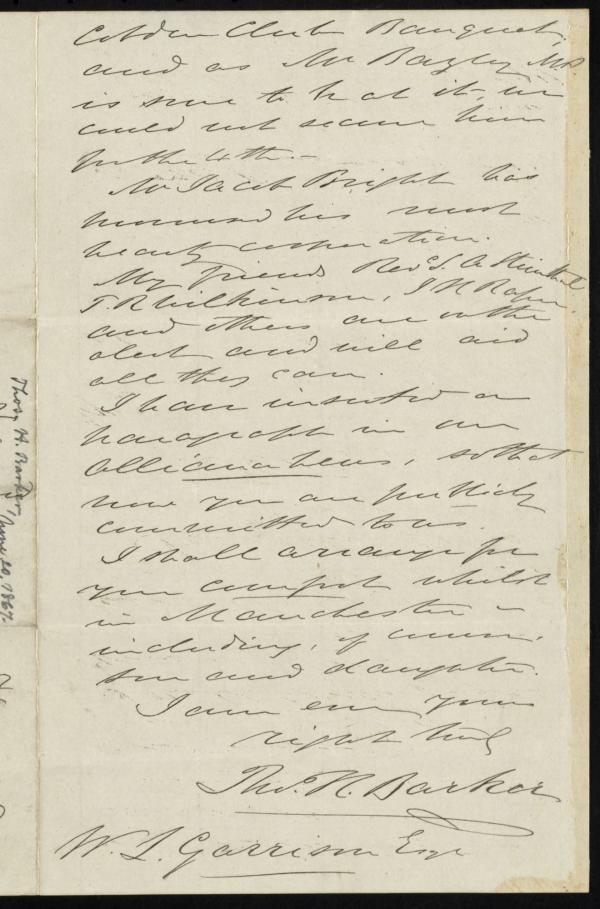 Cobden Club Banquet,
and as Mr Bazley M.P.
is sure to be at it, we
could not secure him
for the 4th.—
Mr Jacob Bright has
promised his most
hearty cooperation.
My friends Revd. S. A. Steinthal
T. R. Wilkinson, J. H. Raper,
and others are on the
alert and will aid
all they can.
I have inserted a
paragraph in our
Alliance News, so that
now you are publicly
committed to us.
I shall arrange for
your comfort whilst
in Manchester —
including, of course,
son and daughter.
I am ever yours
right truly
Thos. H. Barker
W. L. Garrison Esqr
Thos. H. Barker,
June 20, 1867.